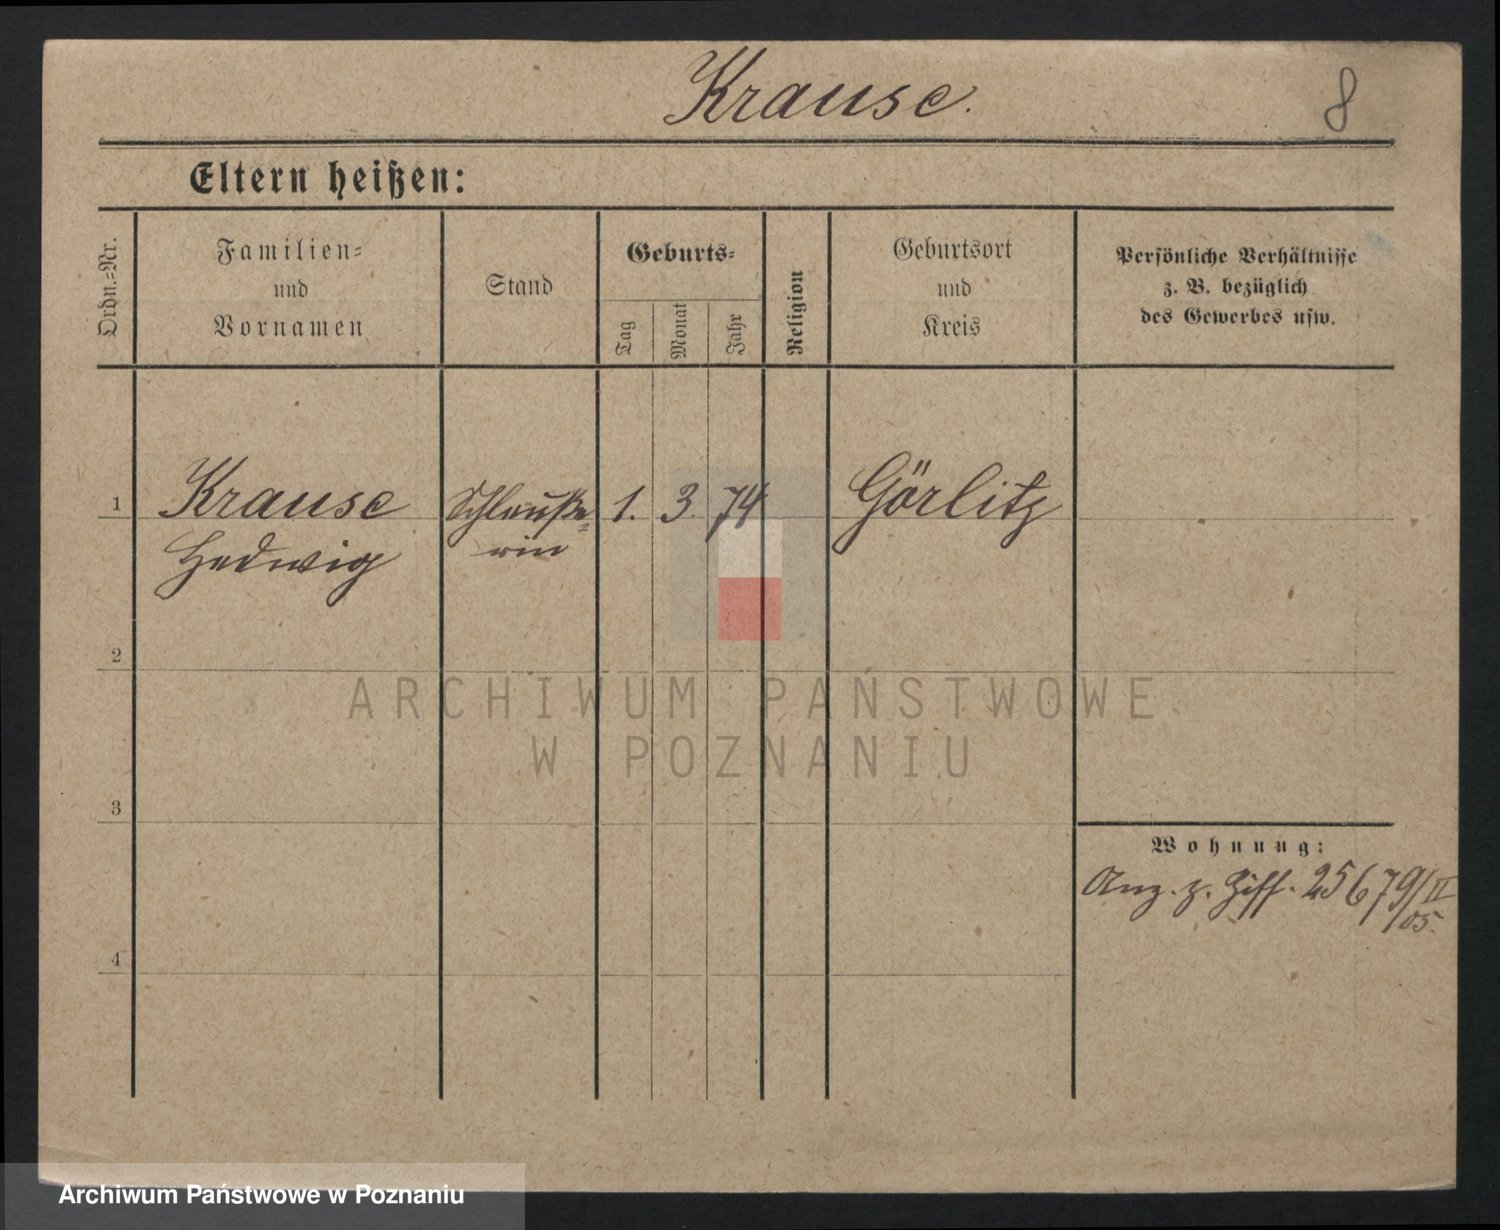 Krause.
8
Eltern heißen:
Ordn.-Nr.
Familien-
und
Vornamen
Stand
Geburts-
Tag
Monat
Jahr
Religion
Geburtsort
und
Kreis
Persönliche Verhältnisse
z. B. bezüglich
des Gewerbes usw.
1
Krause
Hedwig
1. 3. 74
Görlitz
2
3
4
Wohnung:
Anz. z. Ziff. 25679/II
/05.
ARCHIWUM PAŃSTWOWE
W POZNANIU
Archiwum Państwowe w Poznaniu